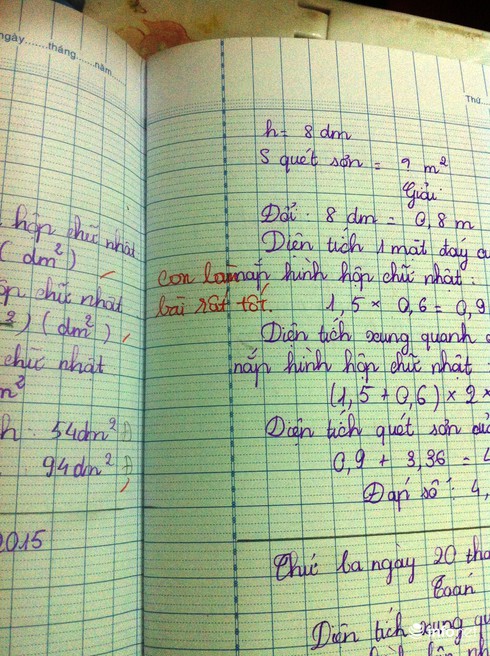 ngày.......tháng......năm......
hộp chữ nhật
( dm²)
ộp chữ nhật
²) ( dm²)
chữ nhật.
m²
h : 54dm²
94dm²
2015
Thứ
h = 8 dm
S quét sơn = ? m²
Giải
Đổi : 8 dm = 0,8 m
Diện tích 1 mặt đáy
nắp hình hộp chữ nhật :
con làm
bài rất tốt.
1,5 × 0,6 = 0,9
Diện tích xung quanh
nắp hình hộp chữ nhật
(1,5 + 0,6) × 2 ×
Diện tích quét sơn
0,9 + 3,36 = 4
Đáp số : 4,
Thứ ba ngày 20 thá
Toán
Diện tích xung qu